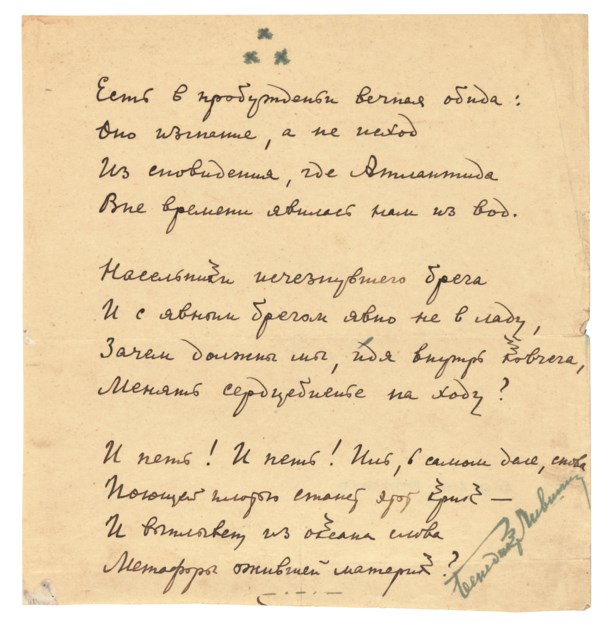 * * *
Есть в пробужденьи вечная обида:
Оно изгнание, а не исход
Из сновидения, где Атлантида
Вне времени явилась нам из вод.
Насельники исчезнувшего брега
И с явным брегом явно не в ладу,
Зачем должны мы, идя внутрь ковчега,
Менять сердцебиенье на ходу?
И петь! И петь! Иль, в самом деле, снова
Поющей плотью станет этот крик —
И выплывет из океана слова
Метафоры ожившей материк?
Бенедикт Лившиц